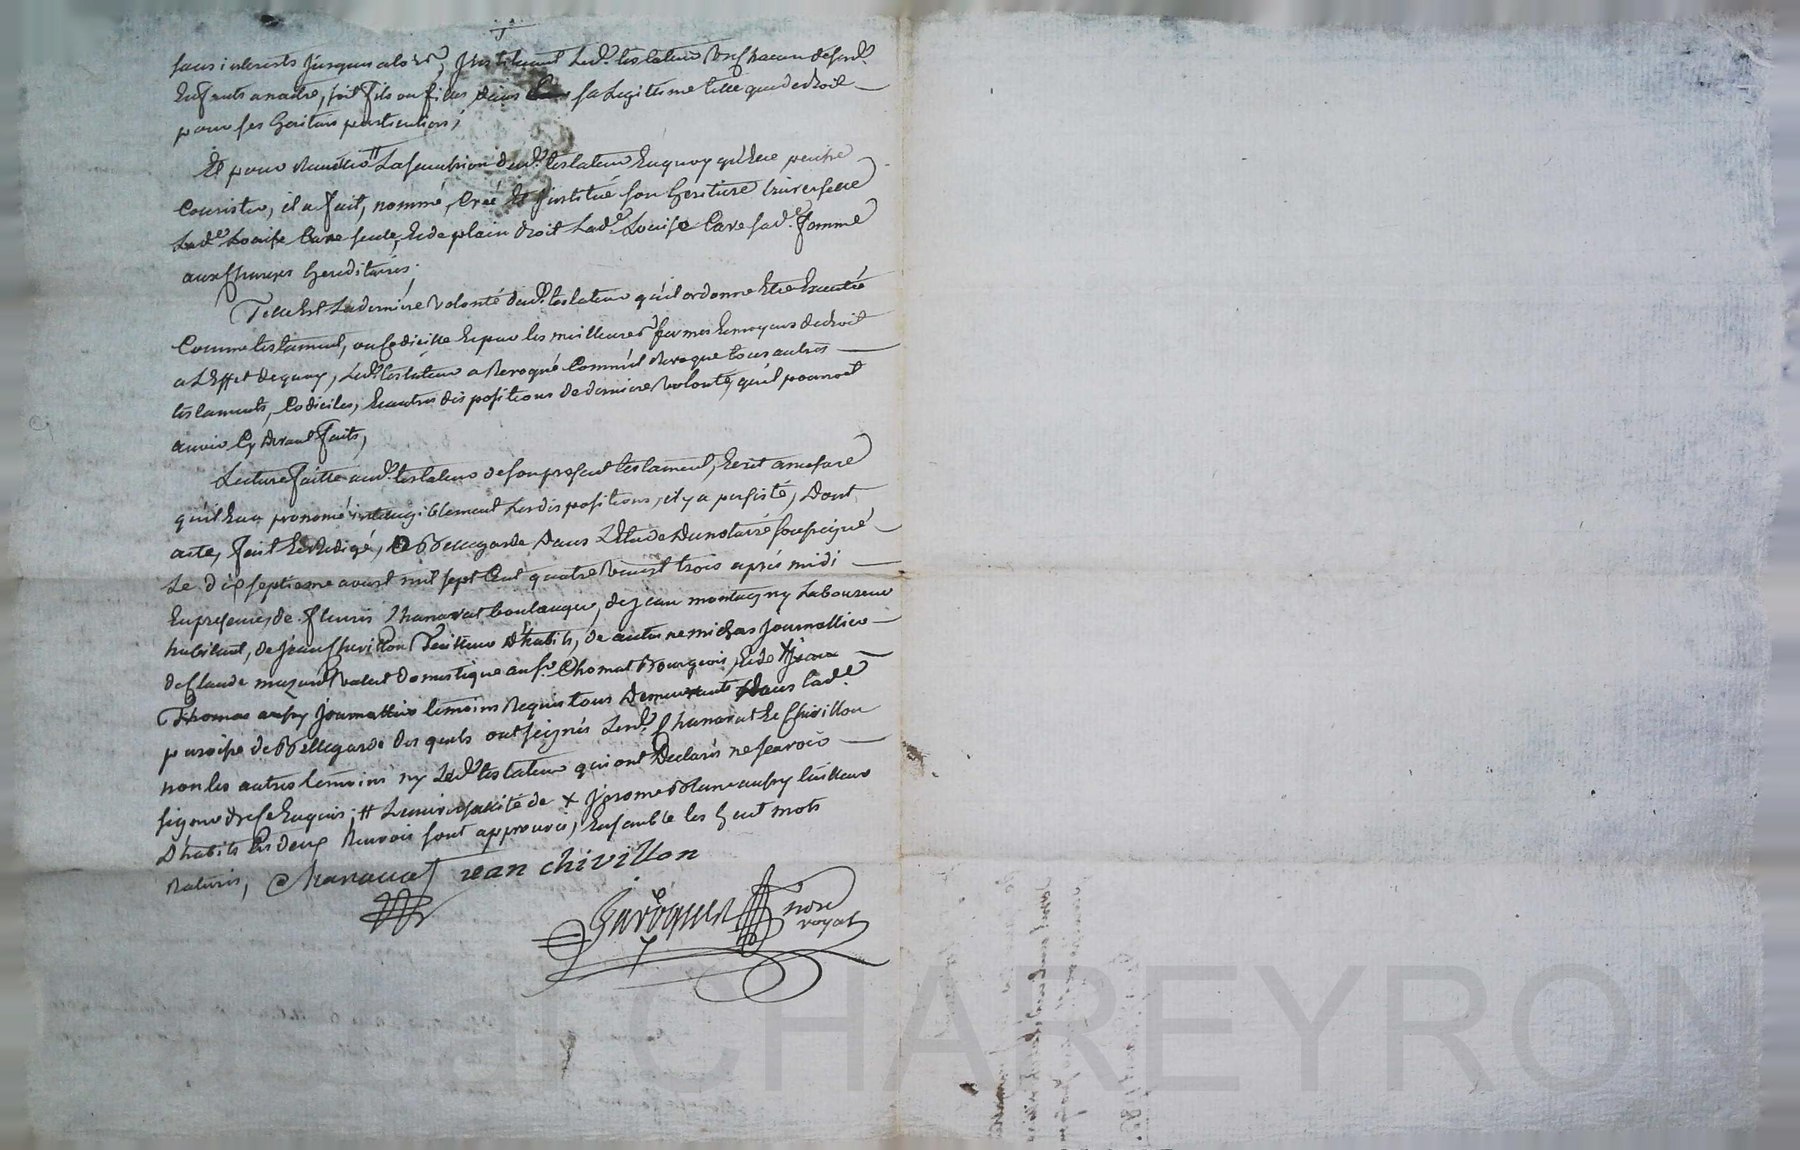 sans interests jusques alors, Instituant Led.t testateur Un chacun desesd.ts
Enfants a naitre, soit fils ou filles dans sa Legitime telle que de droit
pour ses heritiers particuliers,
Et pour # La succession dud.t testateur En quoy qu'elle puisse
Consister, il a fait, nommé, Créé Et Institué son heritiere Universelle
Lad.e Louise Cave seule, Et de plain droit Lad.e Louise Cave sad.e femme
aux Charges hereditaires.
Telle Est La derniere Volonté dud.t testateur qu'il ordonne Etre Executée
Comme testament, ou Codicille Et par les meilleures formes Et moyens de droit
a L'Effet de quoy, Led.t testateur a Revoqué Comm'il Revoque tous autres
testaments, Codiciles, Et autres dispositions de derniere Volonté, qu'il pourroit
avoir Cy devant faits,
Lecture faitte aud.t testateur de son present testament, Ecrit a mesure
qu'il En a prononcé intelligiblement Les dispositions, il y a persisté, Dont
acte, fait Et Redigé, a Bellegarde Dans L'Etude Du notaire soussigné
Le dix septieme aoust mil sept Cent quatre Vingt trois après midi
En presence de fleuris Chanavat boulanger, de jean montagny Laboureur
habitant, de jean Chivillon Tailleur D'habits, de antoine michas journallier
de Claude mazard Valet Domestique au s.r Chomat Bourgeois, Et de X
Thomas aufry journallier temoins Requis tous Demeurants Dans Lad.e
paroisse de Bellegarde Des quels ont seignés Lesd.ts Chanavat Et Chivillon
non les autres temoins ny Led.t testateur qui ont Declarés ne sçavoir
signer de ce Enquis, # L'universalité de X jerome aufry tailleur
D'habits Les deux Renvois sont approuvés, Ensemble les huit mots
Raturés, Chanavat jean chivillon
nore
royal
CHAREYRON